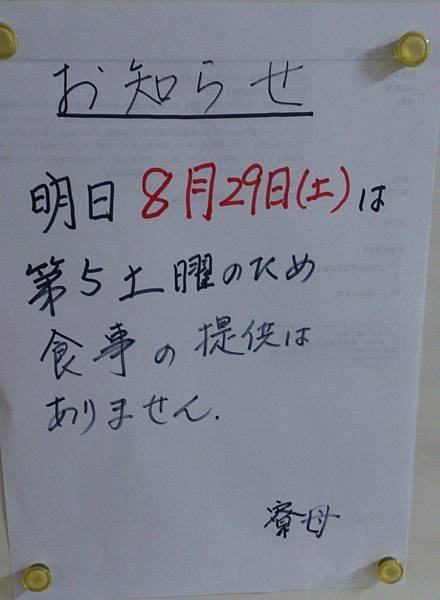 お知らせ
明日 8月29日(土)は
第5土曜のため
食事の提供は
ありません.
寮母